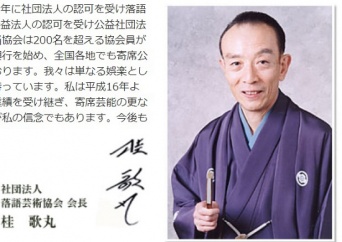 年に社団法人の認可を受け落語
益法人の認可を受け公益社団法
協会は200名を超える協会員が
興行を始め、全国各地でも寄席公
おります。我々は単なる娯楽とし
持っています。私は平成16年よ
業績を受け継ぎ、寄席芸能の更な
が私の信念でもあります。今後も
桂 歌丸
社団法人
落語芸術協会 会長
桂 歌丸